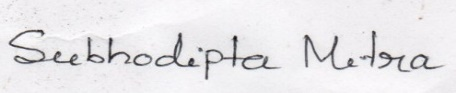 Subhodipta Mitra